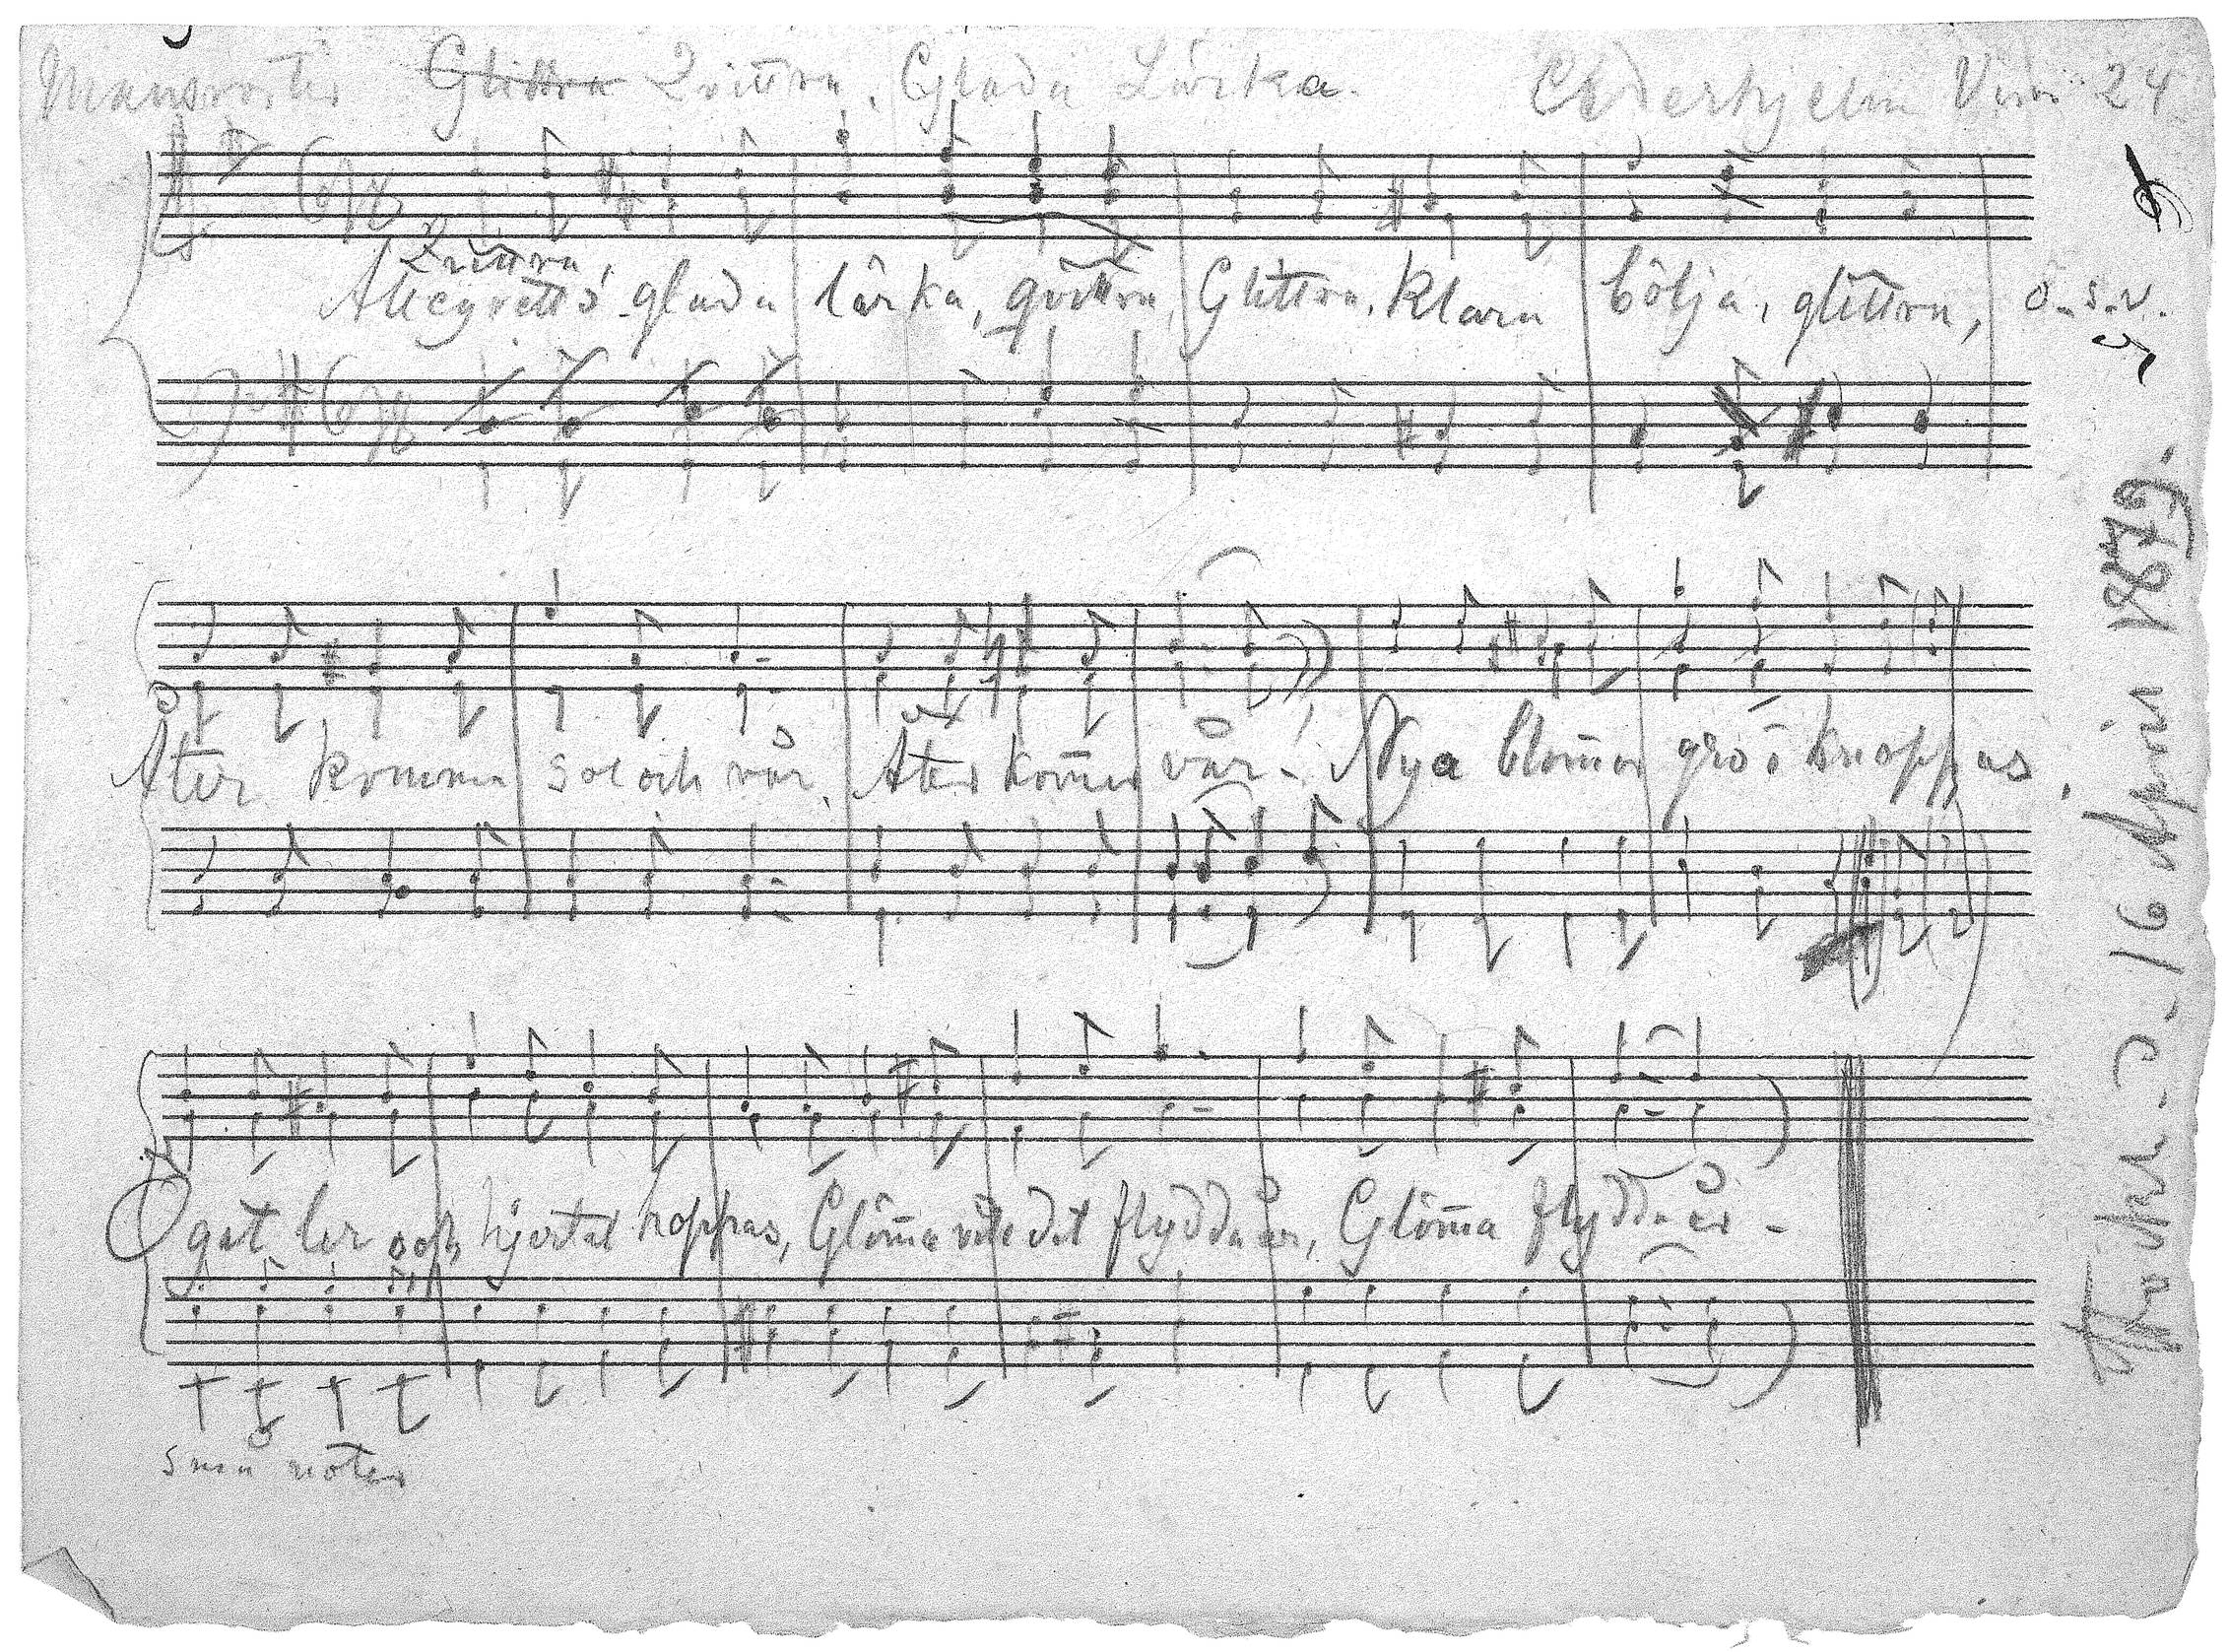 Mansröster Glittra Qvittra. Glada Lärka. Cederhjelm Vår 24
Qvittra,
Allegretto glada lärka, qvittra, Glittra, klara bölja, glittra, o.s.v.
Åter komma sol och vår, Åter kom̅er vår. Nya blom̅or gro o knoppas.
Ögat ler och hjertat hoppas, Glöm̅a vill det flydda år, Glöm̅a flydda år -
små noter
d. 16 April 1879.